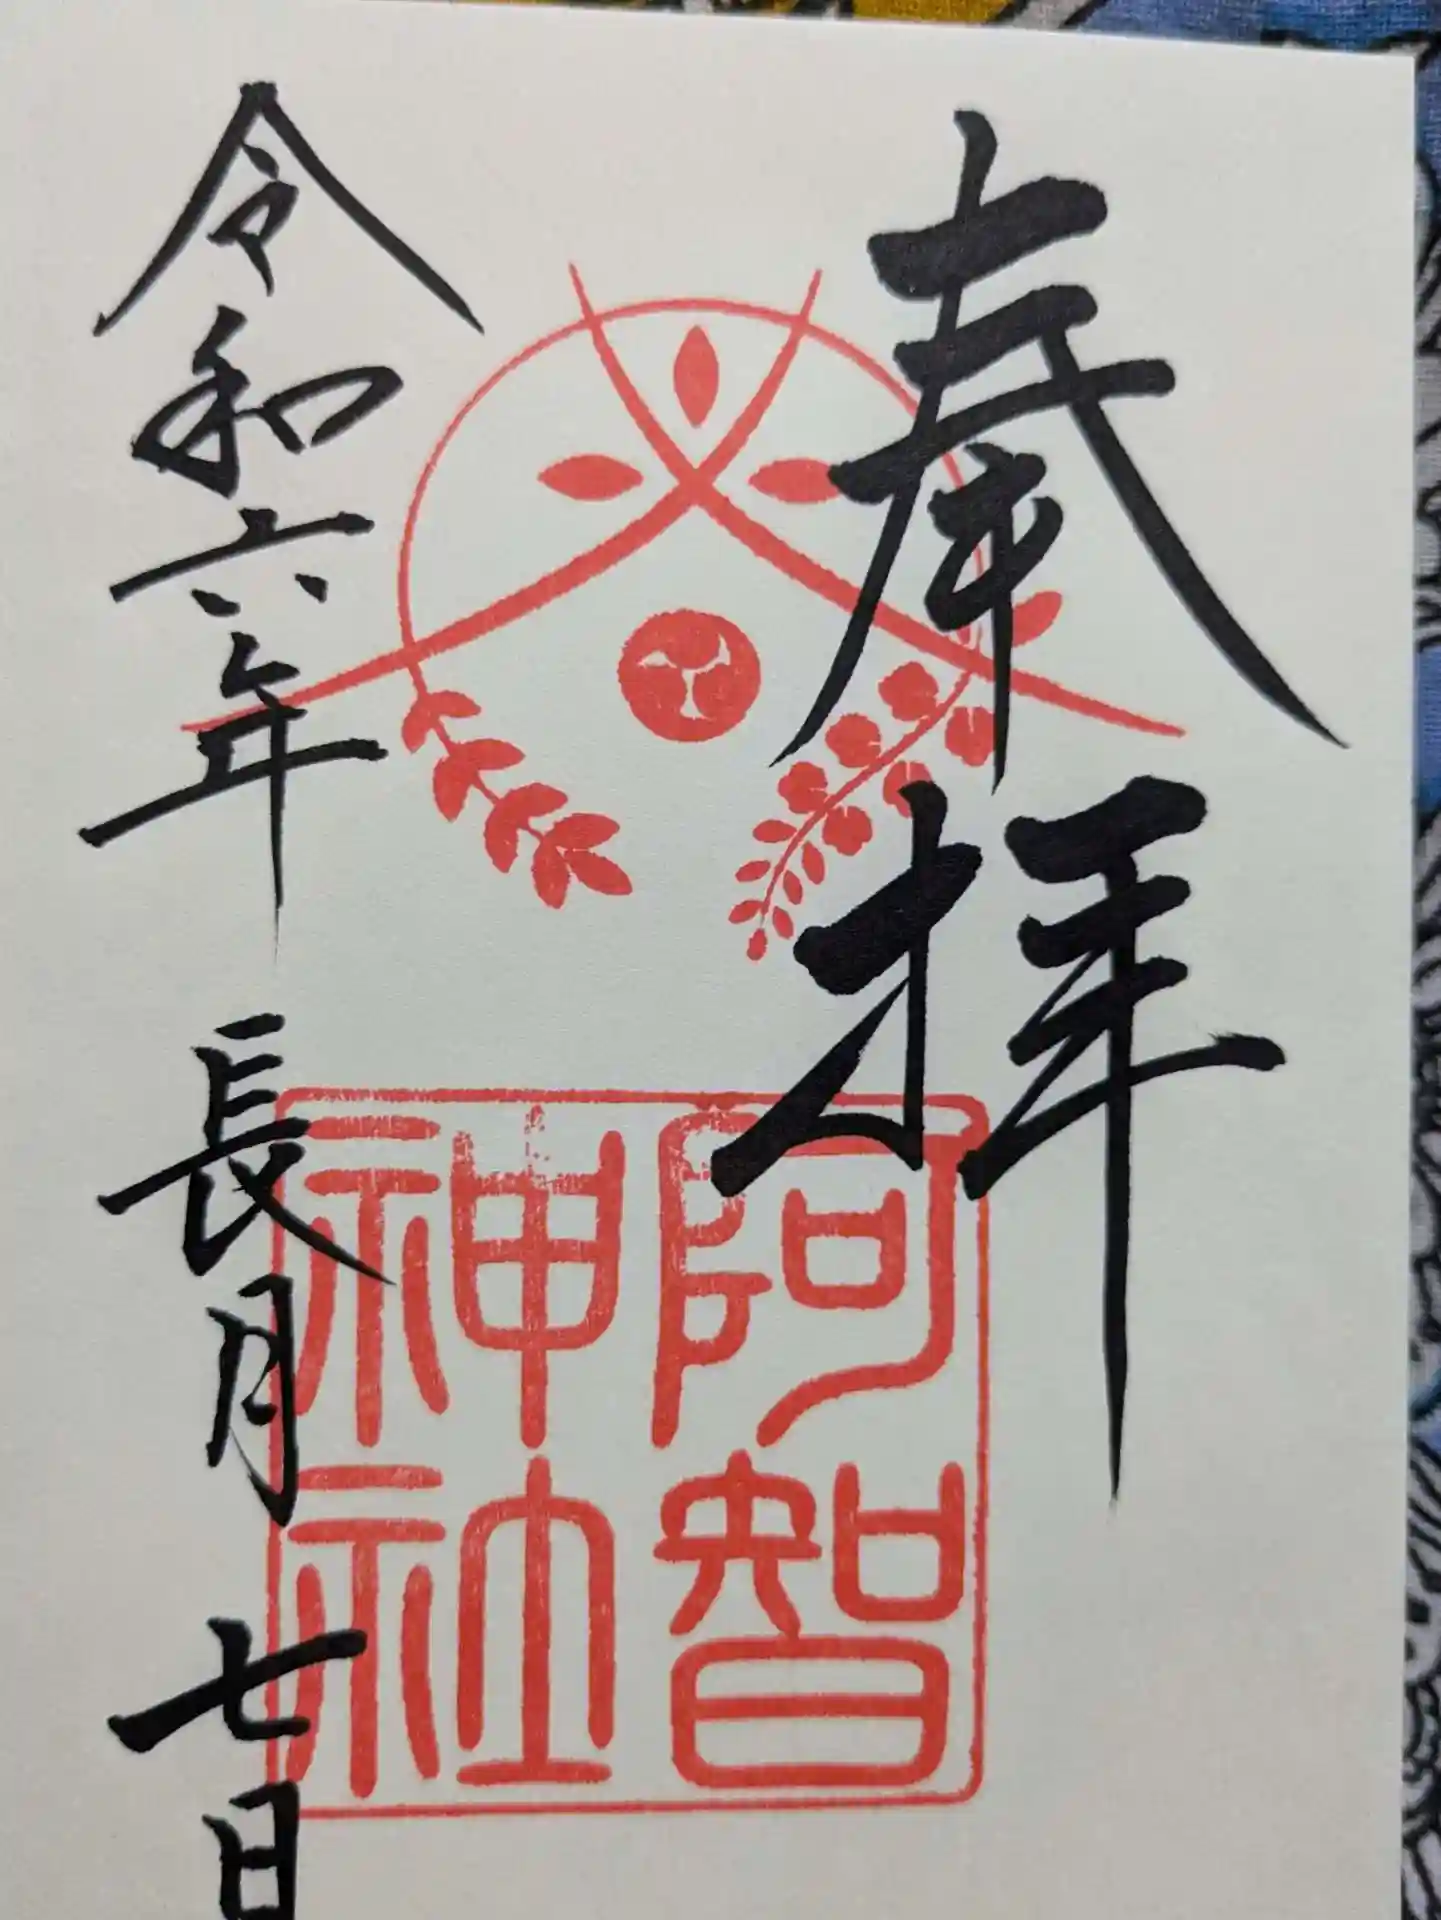 奉拝
阿智神社
令和六年 長月 七日